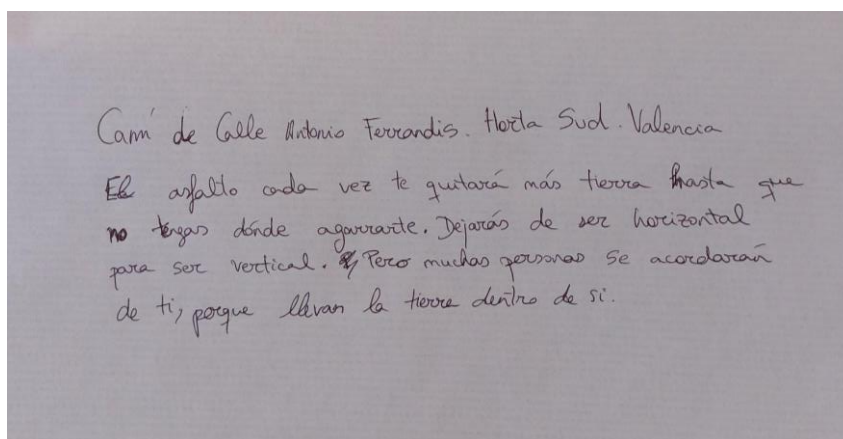 Camí de Calle Antonio Ferrandis. Horta Sud. Valencia
El asfalto cada vez te quitará más tierra hasta que
no tengas dónde agarrarte. Dejarás de ser horizontal
para ser vertical. Pero muchas personas se acordarán
de ti, porque llevan la tierra dentro de si.